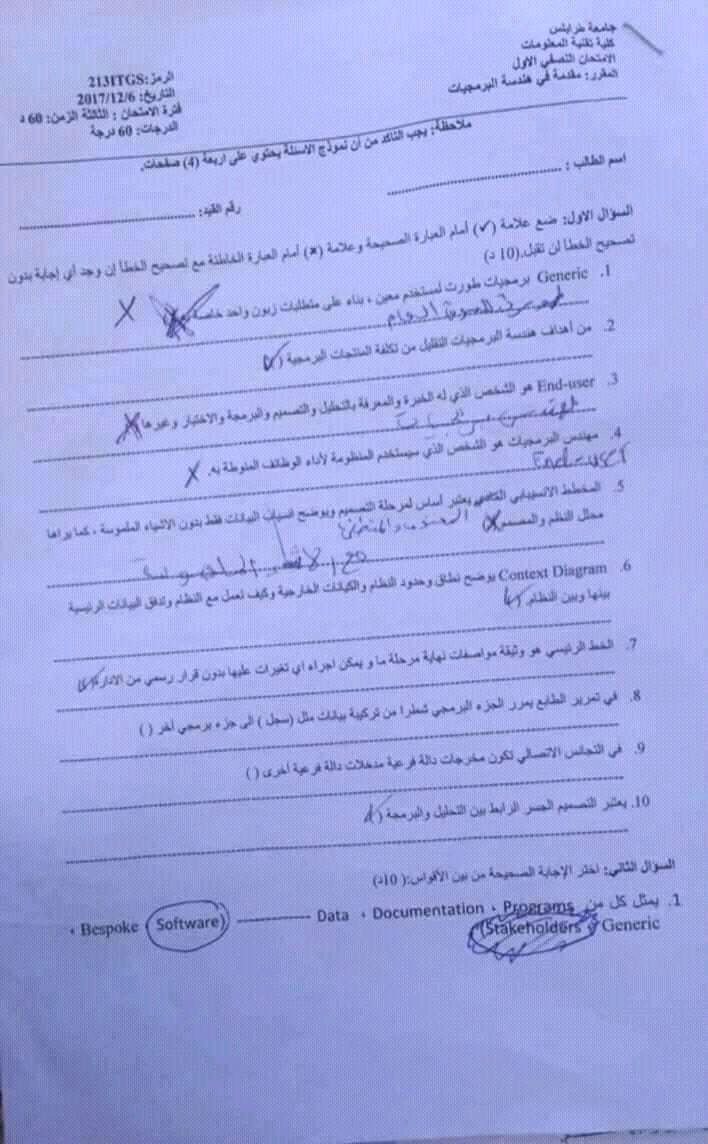 جامعة طرابلس
كلية تقنية المعلومات
الامتحان النصفي الاول
المقرر: مقدمة في هندسة البرمجيات
الرمز:213ITGS
التاريخ: 2017/12/6
فترة الامتحان : الثالثة الزمن: 60 د
الدرجات: 60 درجة
ملاحظة: يجب التأكد من أن نموذج الاسئلة يحتوي على اربعة (4) صفحات.
اسم الطالب : ........................................
رقم القيد: ........................................
السؤال الاول: ضع علامة (✓) أمام العبارة الصحيحة وعلامة (×) أمام العبارة الخاطئة مع تصحيح الخطأ إن وجد أي إجابة بدون
تصحيح الخطأ لن تقبل.(10 د)
1. Generic برمجيات طورت لمستخدم معين ، بناء على متطلبات زبون واحد خاصة X
للسوق العام
2. من أهداف هندسة البرمجيات التقليل من تكلفة المنتجات البرمجية (✓)
3. End-user هو الشخص الذي له الخبرة والمعرفة بالتحليل والتصميم والبرمجة والاختبار وغيرها X
4. مهندس البرمجيات هو الشخص الذي سيستخدم المنظومة لأداء الوظائف المنوطة به. X
End-user
5. المخطط الانسيابي يعتبر أساس لمرحلة التصميم ويوضح انسياب البيانات فقط بدون الاشياء الملموسة ، كما يراها
محلل النظم والمصمم (X)
مع الاشياء الملموسة
6. Context Diagram يوضح نطاق وحدود النظام والكيانات الخارجية وكيف تعمل مع النظام وتدفق البيانات الرئيسية
بينها وبين النظام. (✓)
7. الخط الرئيسي هو وثيقة مواصفات نهاية مرحلة ما و يمكن اجراء اي تغيرات عليها بدون قرار رسمي من الادارة
8. في تمرير الطابع يمرر الجزء البرمجي شطرا من تركيبة بيانات مثل (سجل ) الى جزء برمجي أخر ( )
9. في التجانس الاتصالي تكون مخرجات دالة فرعية مدخلات دالة فرعية أخرى ( )
10. يعتبر التصميم الجسر الرابط بين التحليل والبرمجة (✓)
السؤال الثاني: اختر الإجابة الصحيحة من بين الأقواس:( 10د)
1. يمثل كل من Programs ، Documentation ، Data ------------ (Software ، Bespoke ،
Generic ، Stakeholders)